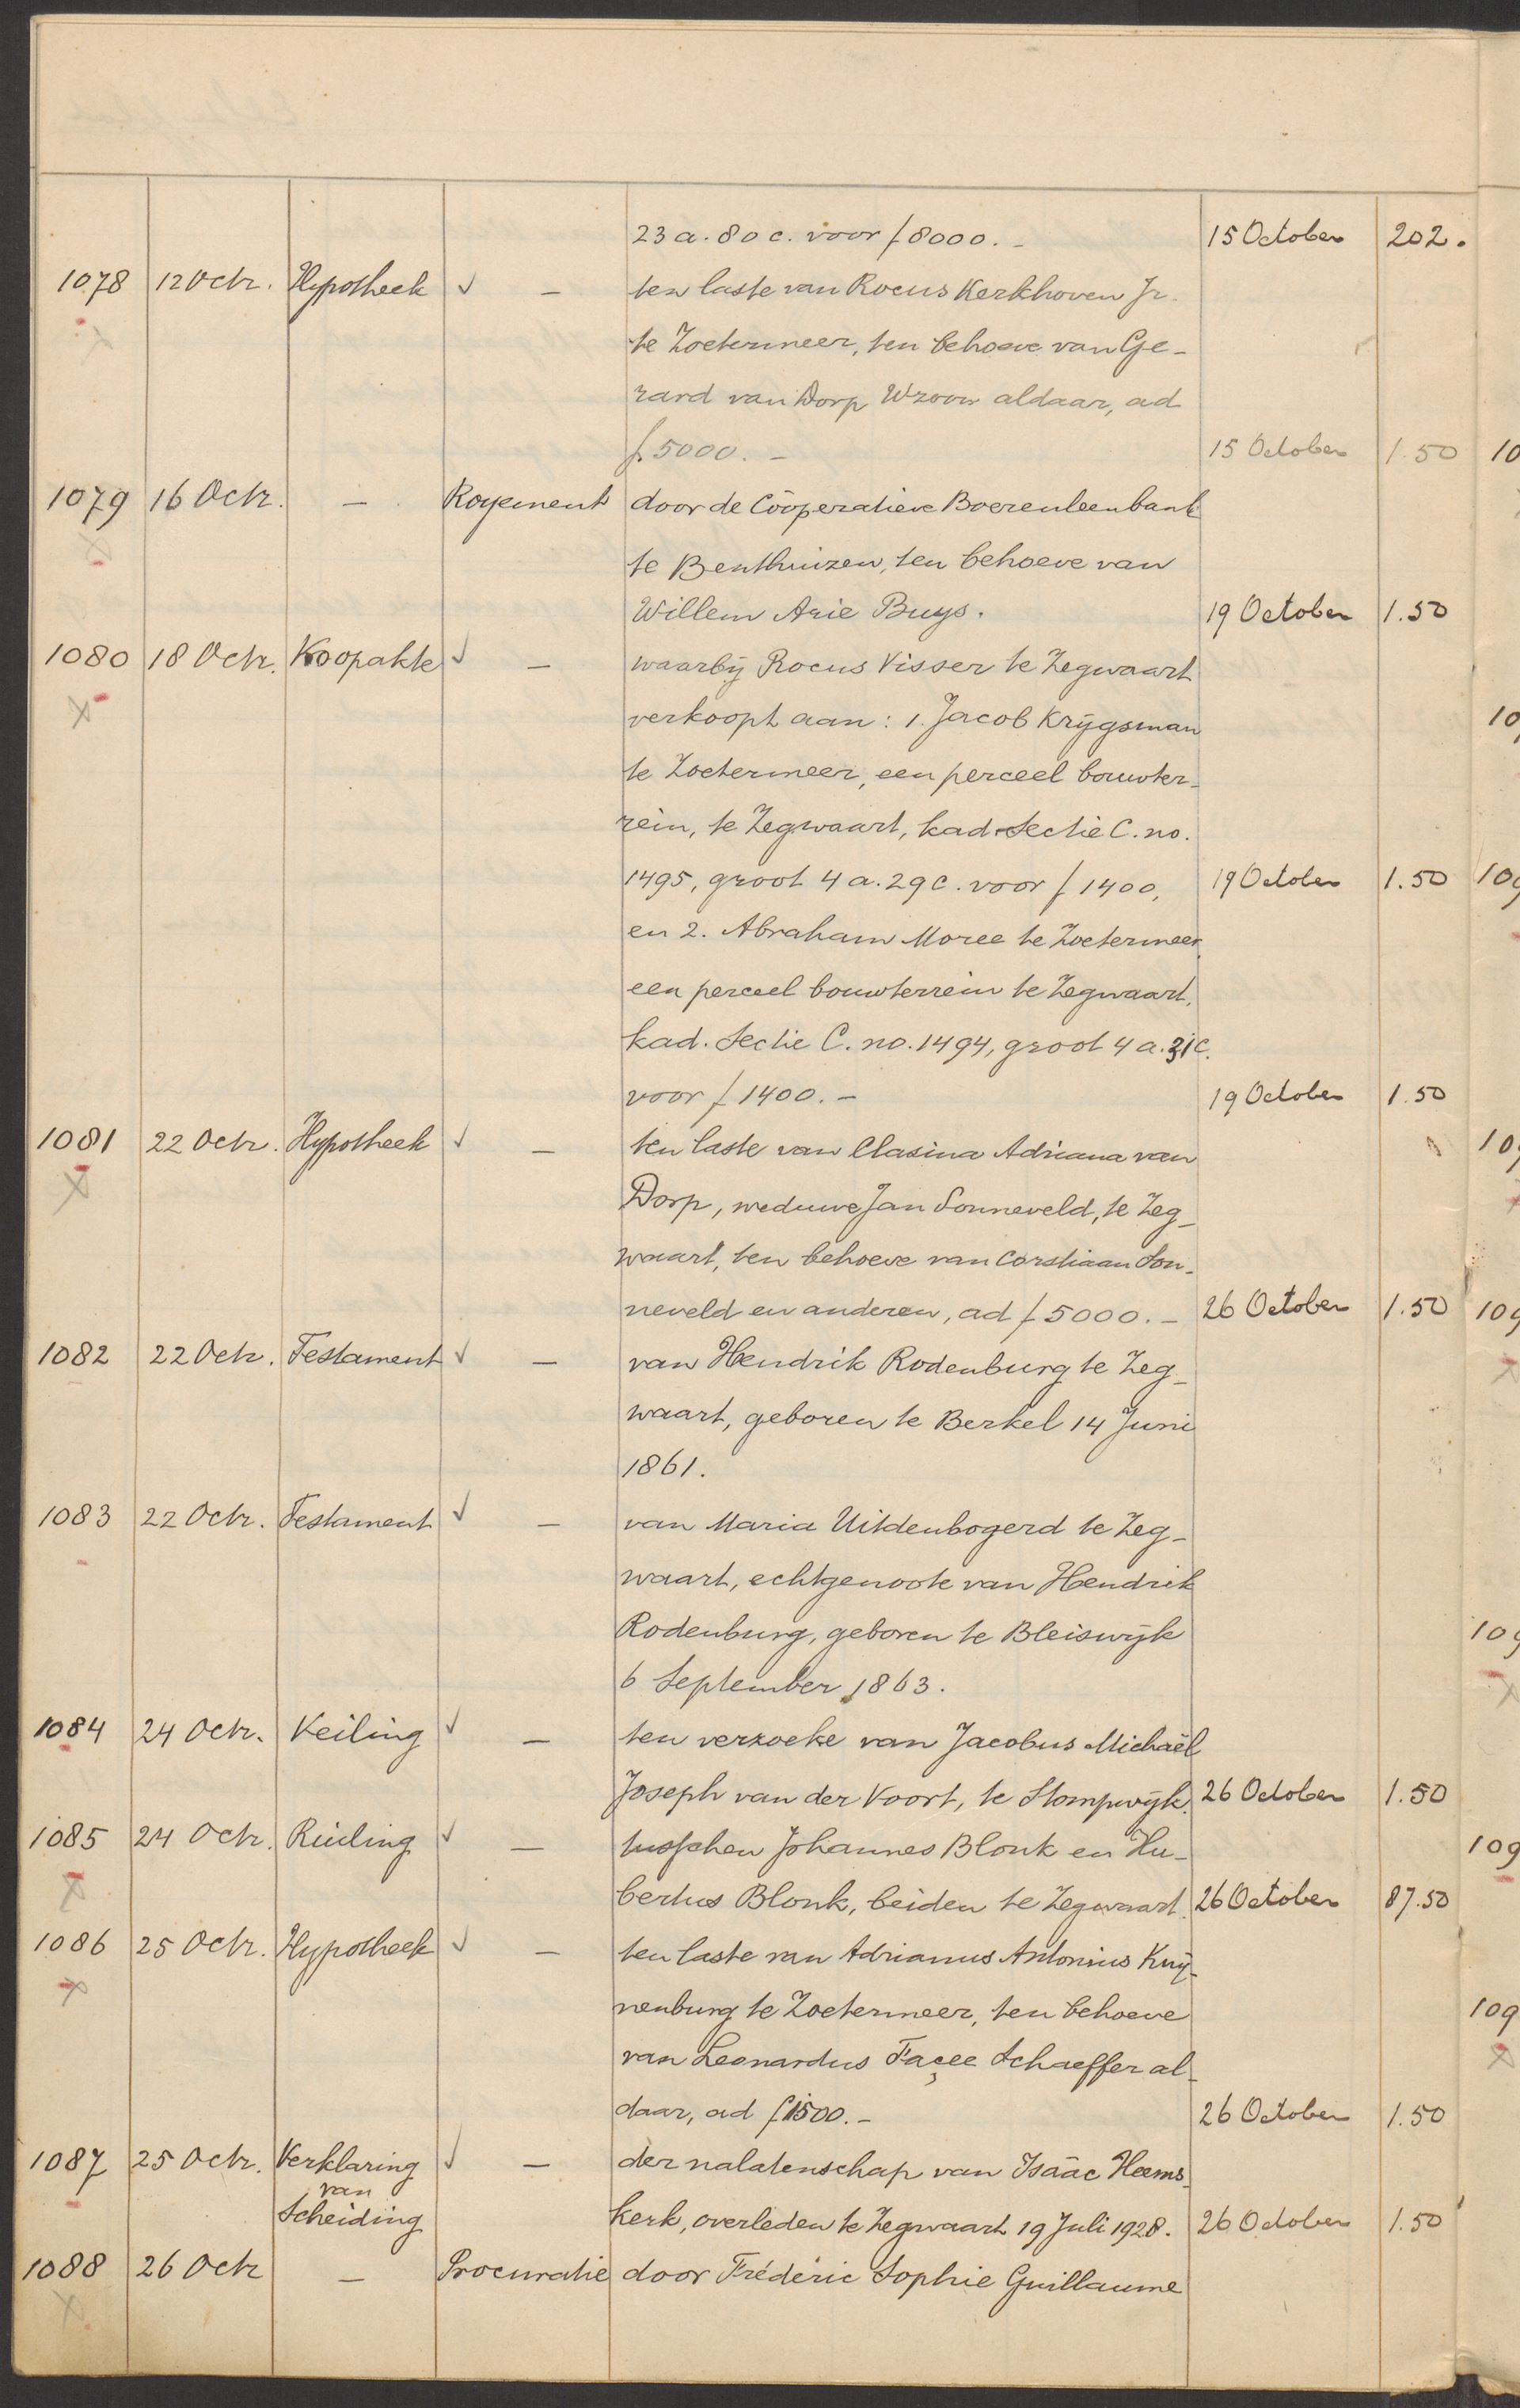 23 a. 80 c. voor f 8000. - 15 October 202.
1078 12 Octr. Hypotheek √ - ten laste van Rocus Kerkhoven Jr.
te Zoetermeer, ten behoeve van Ge-
rard van Dorp Wzoon aldaar, ad
f. 5000. - 15 October 1.50
1079 16 Octr. - Royement door de Coöperatieve Boerenleenbank
te Benthuizen, ten behoeve van
Willem Arie Buys. 19 October 1.50
1080 18 Octr. Koopakte √ - waarbij Rocus Visser te Zegwaart
verkoopt aan: 1. Jacob Krijgsman
te Zoetermeer, een perceel bouwter-
rein, te Zegwaart, kad. Sectie C. no.
1495, groot 4 a. 29 c. voor f 1400, 19 October 1.50
en 2. Abraham Moree te Zoetermeer,
een perceel bouwterrein te Zegwaart,
kad. Sectie C. no. 1494, groot 4 a. 31 c.
voor f 1400. - 19 October 1.50
1081 22 Octr. Hypotheek √ - ten laste van Clasina Adriana van
Dorp, weduwe Jan Sonneveld, te Zeg-
waart, ten behoeve van Corstiaan Son-
neveld en anderen, ad f 5000. - 26 October 1.50
1082 22 Octr. Testament √ - van Hendrik Rodenburg te Zeg-
waart, geboren te Berkel 14 Juni
1861.
1083 22 Octr. Testament √ - van Maria Uitdenbogerd te Zeg-
waart, echtgenoote van Hendrik
Rodenburg, geboren te Bleiswijk
6 September 1863.
1084 24 Octr. Veiling √ - ten verzoeke van Jacobus Michaël
Joseph van der Voort, te Stompwijk. 26 October 1.50
1085 24 Octr. Ruiling √ - tusschen Johannes Blonk en Hu-
bertus Blonk, beiden te Zegwaart. 26 October 87.50
1086 25 Octr. Hypotheek √ - ten laste van Adrianus Antonius Knij-
nenburg te Zoetermeer, ten behoeve
van Leonardus Façee Schaeffer al-
daar, ad f 1500. - 26 October 1.50
1087 25 Octr. Verklaring √ - der nalatenschap van Isaäc Heems-
van
Scheiding kerk, overleden te Zegwaart 19 Juli 1928. 26 October 1.50
1088 26 Octr - Procuratie door Fréderic Sophie Guillaume